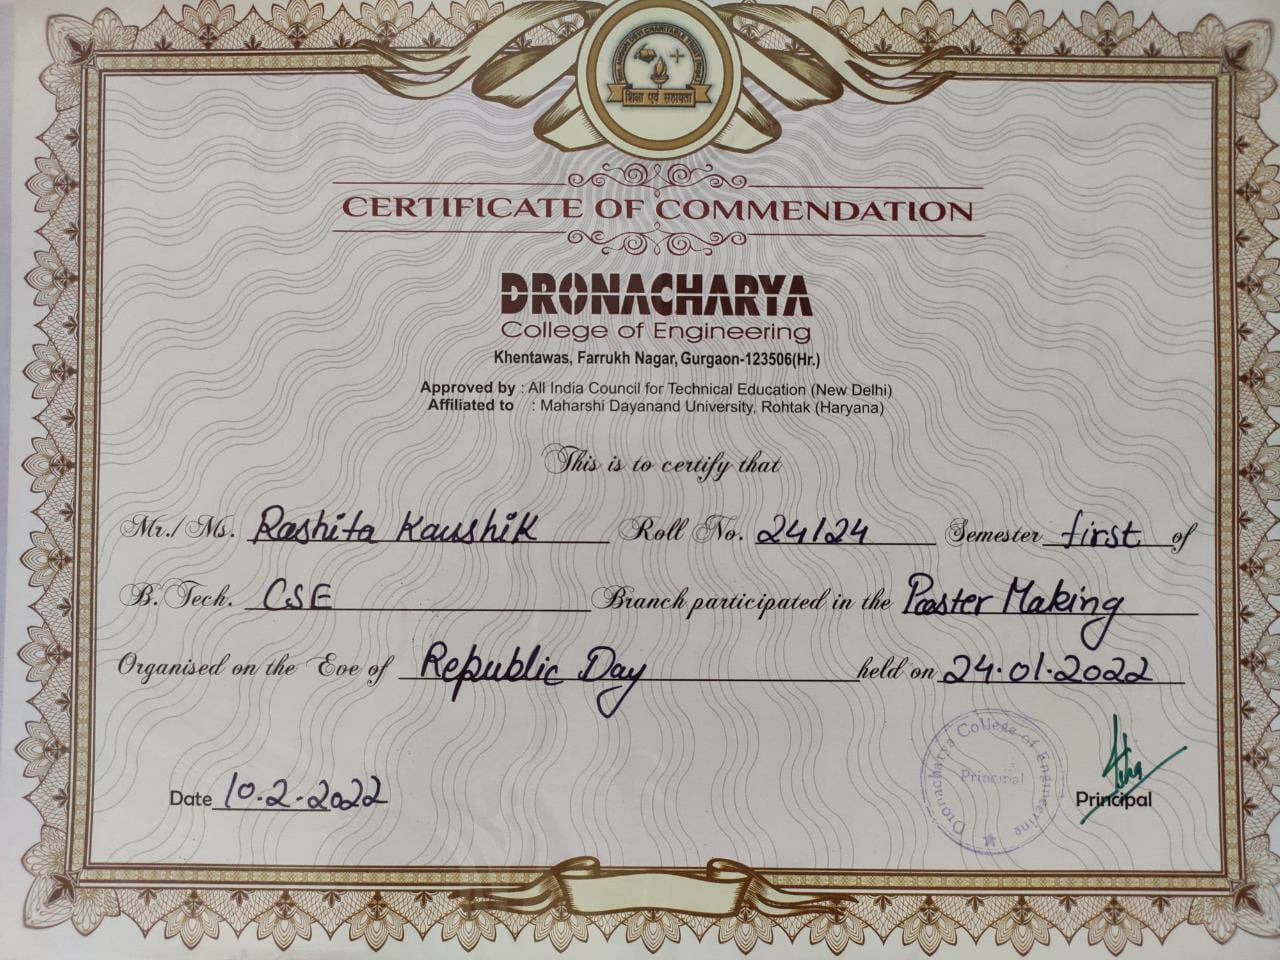 शिक्षा एवं सहायता
CERTIFICATE OF COMMENDATION
DRONACHARYA
College of Engineering
Khentawas, Farrukh Nagar, Gurgaon-123506(Hr.)
Approved by : All India Council for Technical Education (New Delhi)
Affiliated to : Maharshi Dayanand University, Rohtak (Haryana)
This is to certify that
Mr./ Ms. Rashita Kaushik Roll No. 24124 Semester first of
B. Tech. CSE Branch participated in the Poster Making
Organised on the Eve of Republic Day held on 24.01.2022
Dronacharya College of Engineering
Principal
Date 10.2.2022
Principal